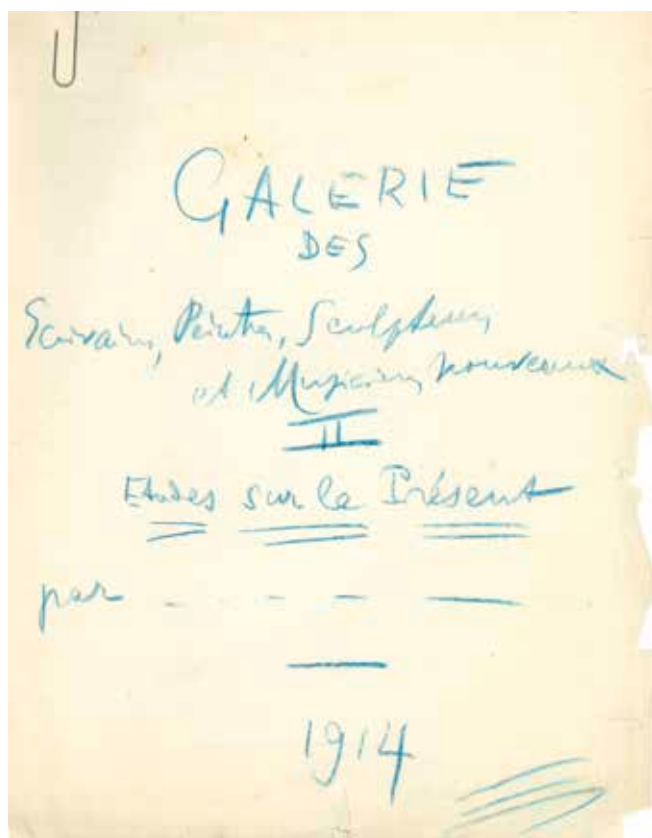 GALERIE
DES
Ecrivains, Peintres, Sculpteurs,
et Musiciens nouveaux
II
Etudes sur le Présent
par
1914